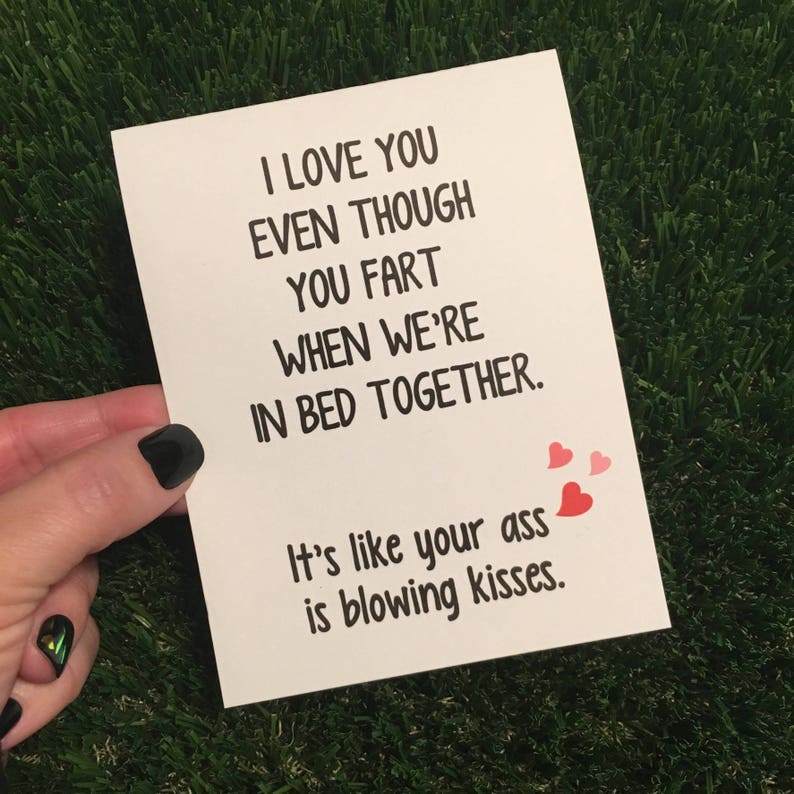 I LOVE YOU
EVEN THOUGH
YOU FART
WHEN WE'RE
IN BED TOGETHER.
It's like your ass
is blowing kisses.